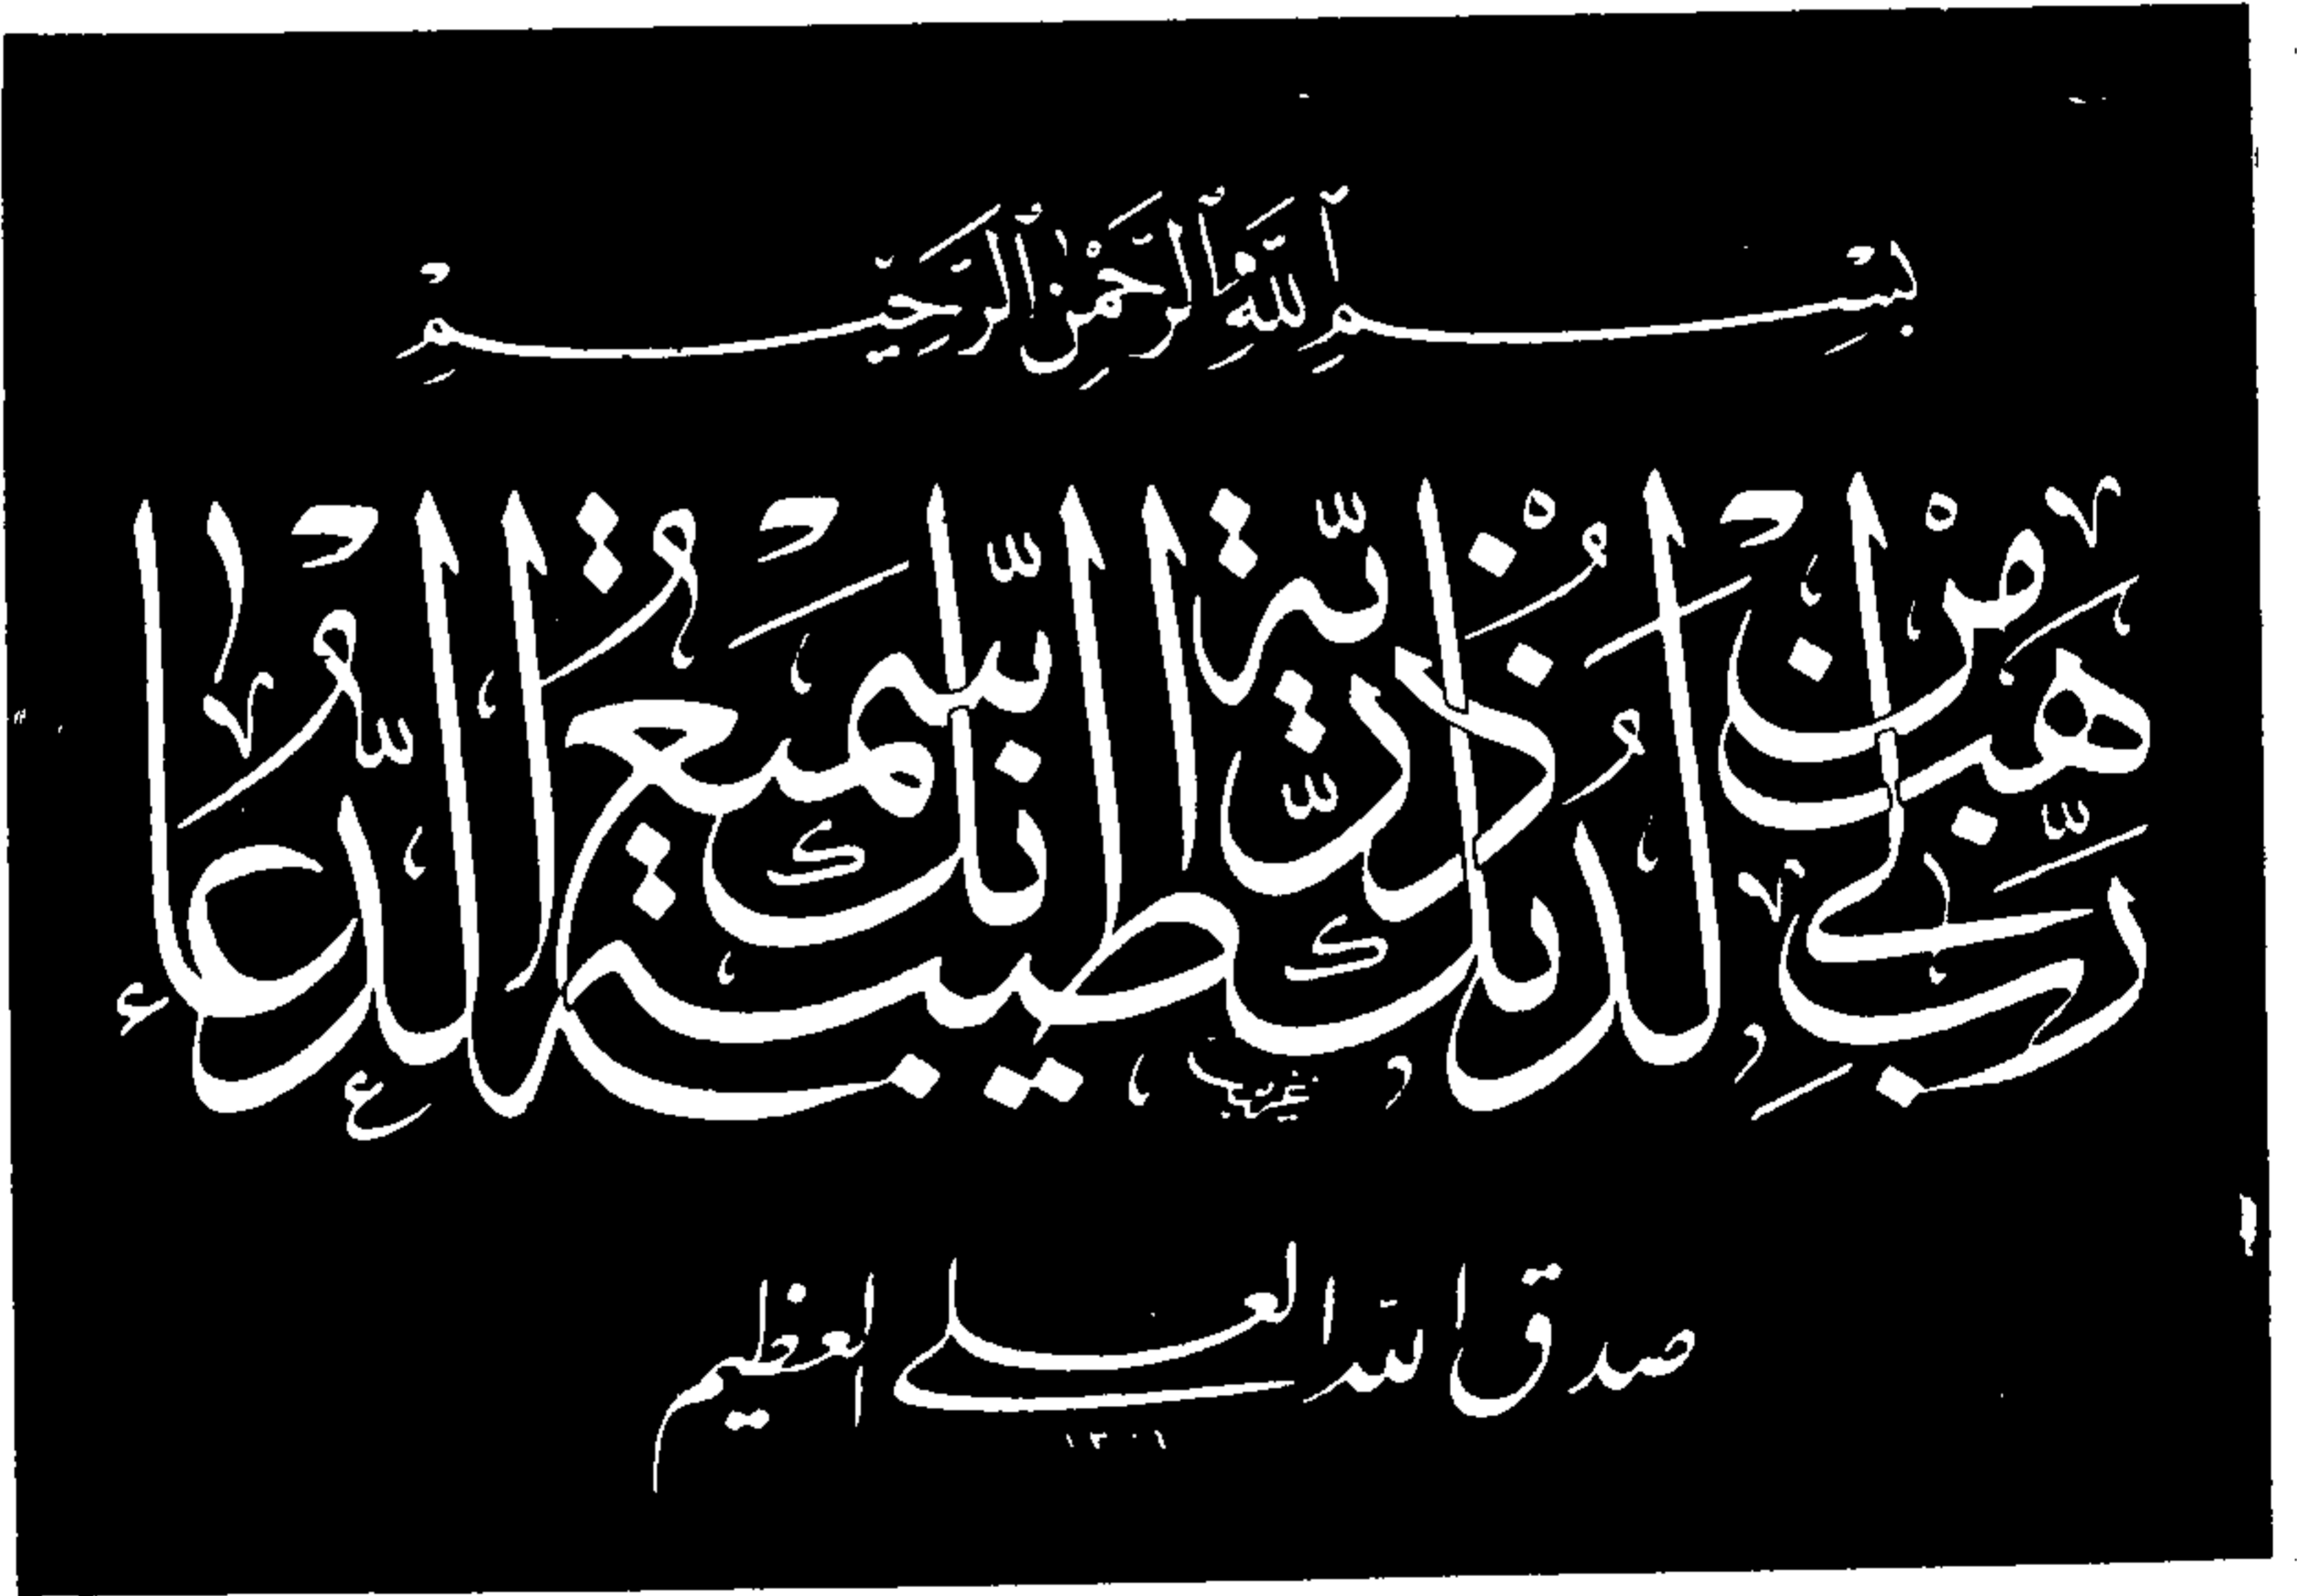 بِسْمِ اللَّهِ الرَّحْمٰنِ الرَّحِيمِ
رب هب لى من لدنك ذرية طيبة انك سميع الدعاء
صدق الله العلى العظيم